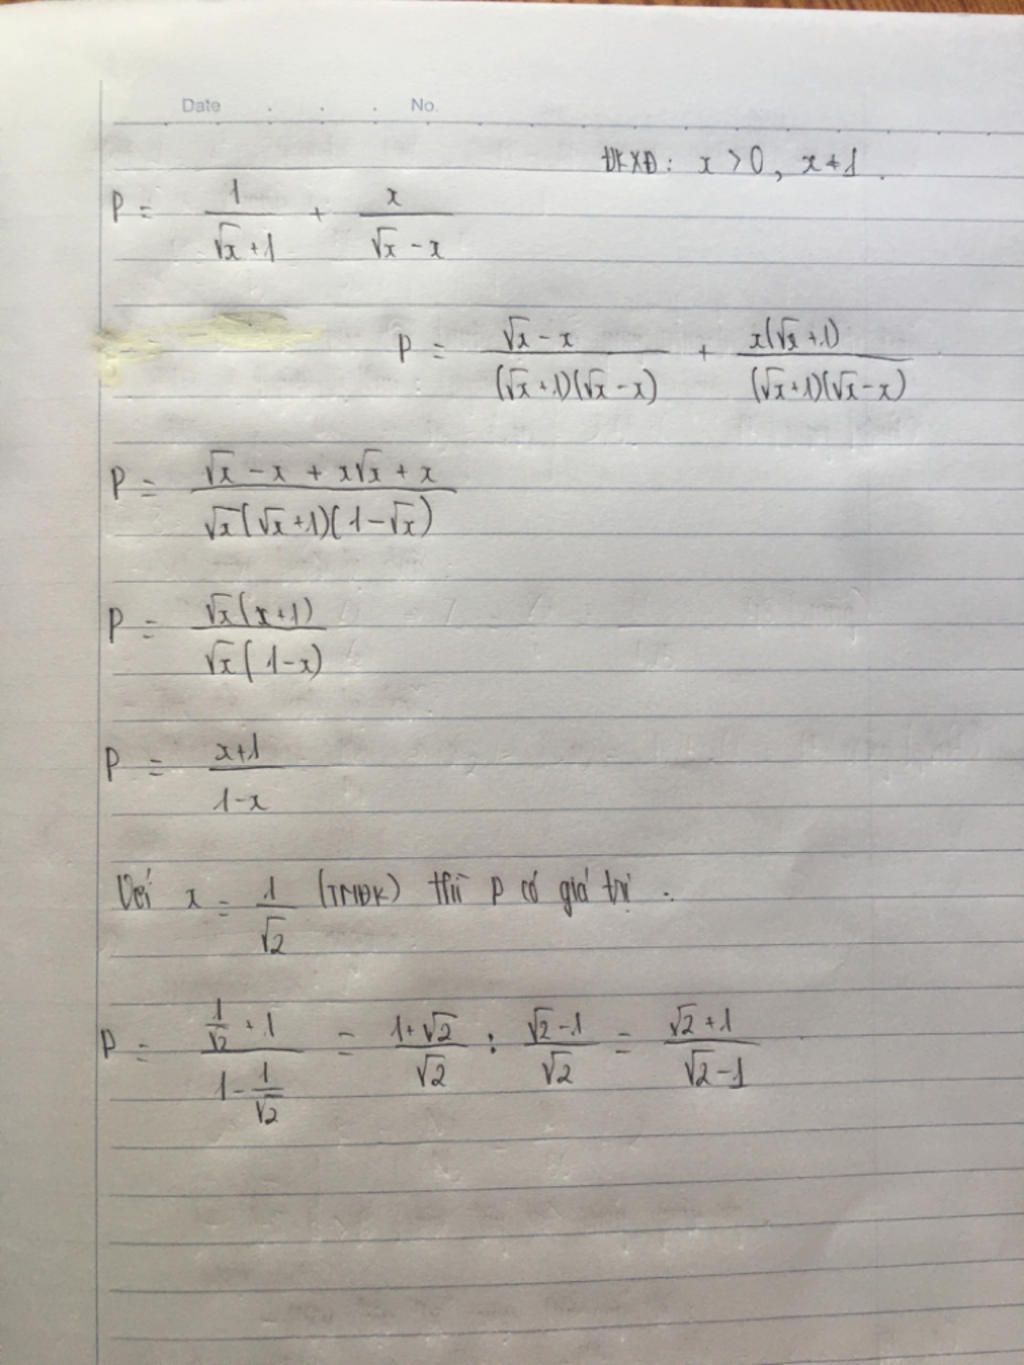 Date No.
ĐKXĐ: x > 0, x ≠ 1.
P = 1/(√x + 1) + x/(√x - x)
P = (√x - x)/((√x + 1)(√x - x)) + x(√x + 1)/((√x + 1)(√x - x))
P = (√x - x + x√x + x)/(√x(√x + 1)(1 - √x))
P = √x(x + 1)/(√x(1 - x))
P = (x + 1)/(1 - x)
Với x = 1/√2 (TMĐK) thì P có giá trị :
P = (1/√2 + 1)/(1 - 1/√2) = (1 + √2)/√2 : (√2 - 1)/√2 = (√2 + 1)/(√2 - 1)